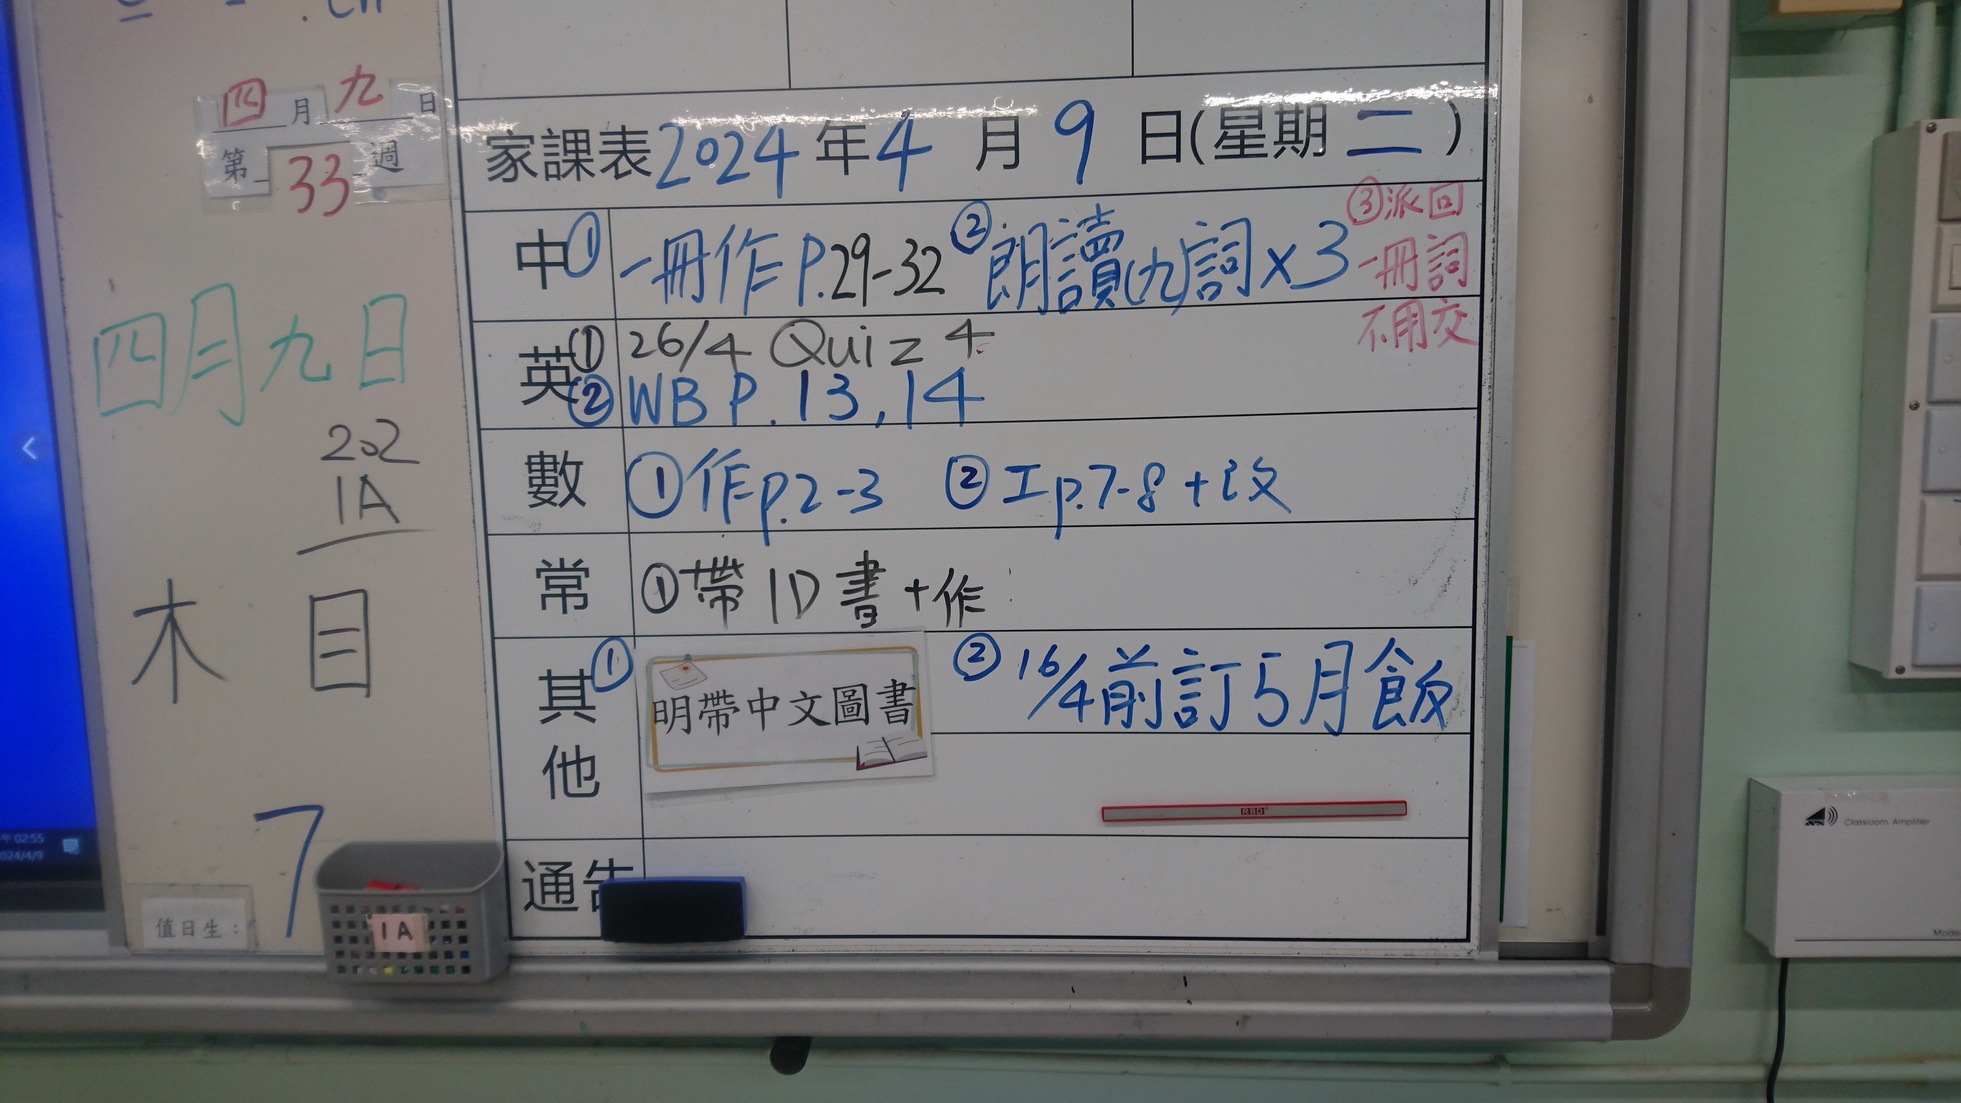 四月九日
第33週
四月九日
202
1A
木目
7
值日生：
1A
家課表2024年4月9日(星期二)
中①一冊作P.29-32 ②朗讀(九)詞x3 ③派回
一冊詞
不用交
英①26/4 Quiz 4
②WB P.13,14
數 ①作p.2-3 ②工p.7-8+改
常 ①帶1D書+作
其他 ①明帶中文圖書 ②16/4前訂5月飯
RBD
通告
02:55
2024/4/9
Classroom Amplifier